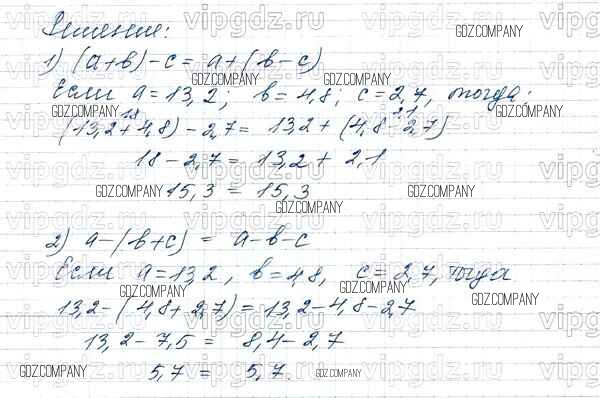 Решение:
1) (a+в)-c = a+(в-c)
Если a=13,2; в=4,8; c=2,7, тогда:
18 2,1
(13,2+4,8)-2,7= 13,2+(4,8-2,7)
18-2,7= 13,2+ 2,1
15,3 = 15,3
2) a-(в+c) = a-в-c
Если a=13,2, в=4,8, c=2,7, тогда
13,2-(4,8+2,7)=13,2-4,8-2,7
13,2-7,5 = 8,4-2,7
5,7 = 5,7.
vipgdz.ru
GDZ.COMPANY